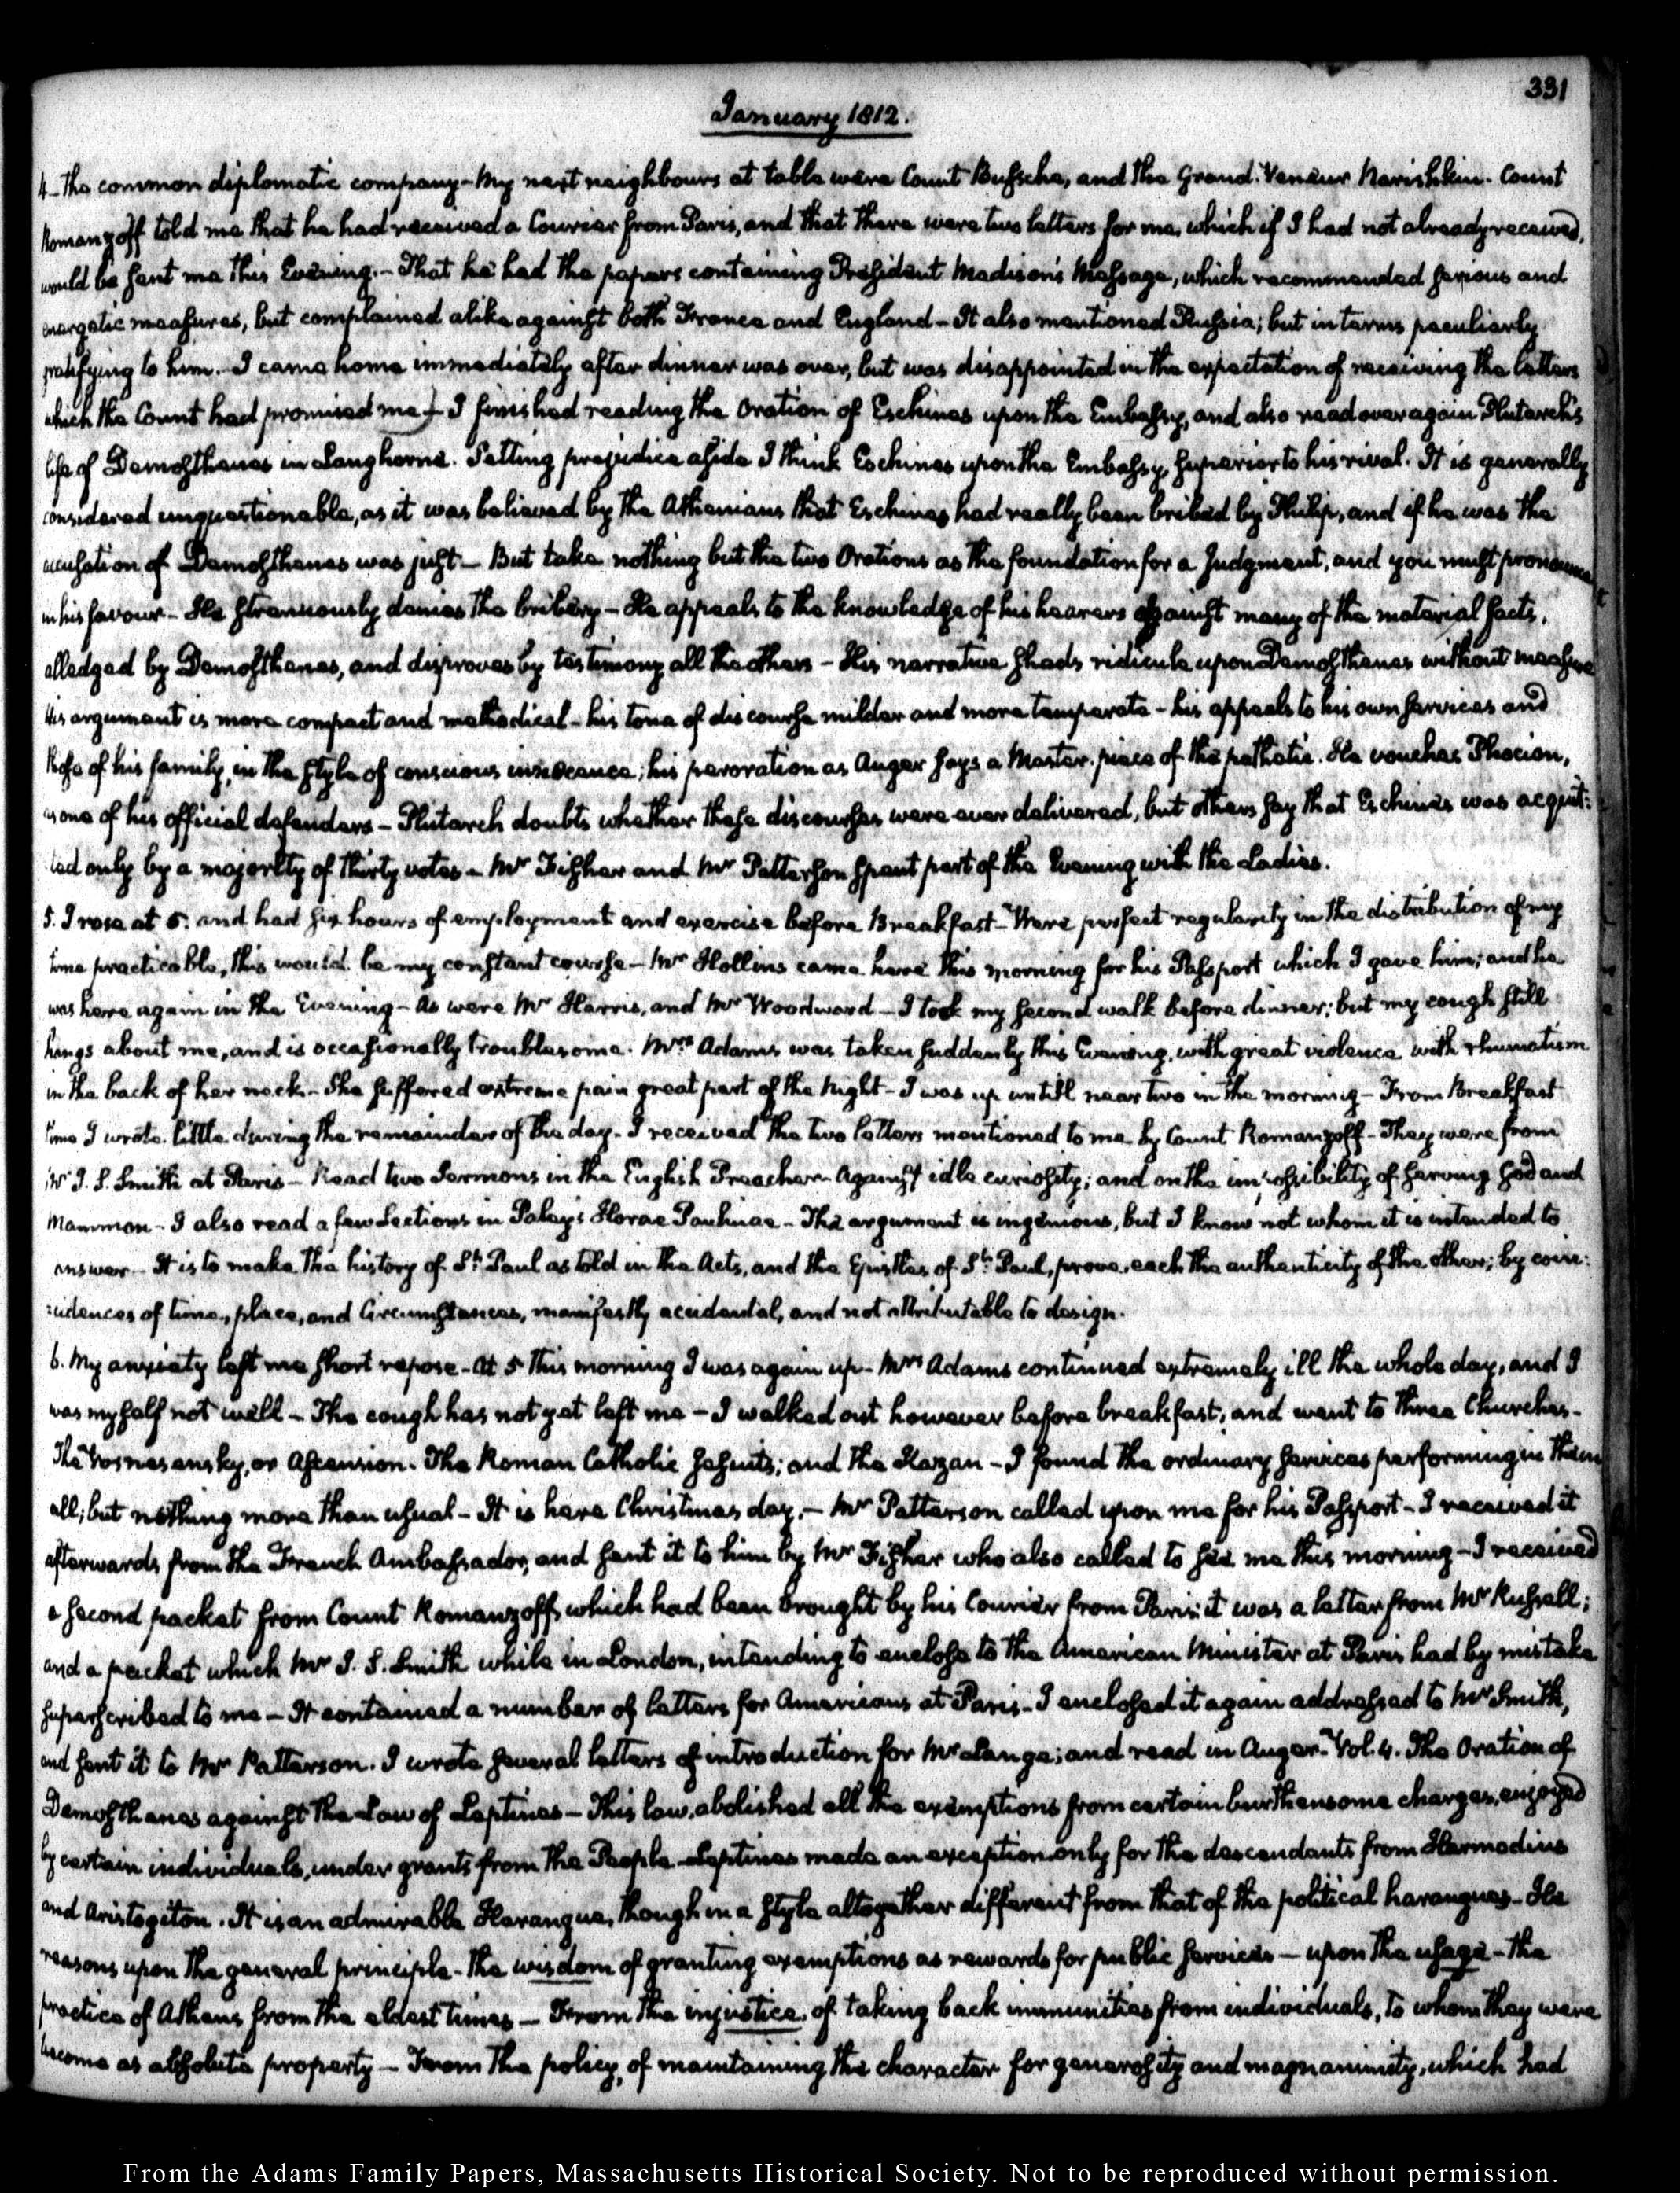 331
January 1812.
4. The common diplomatic company - My next neighbours at table were Count Bussche, and the Grand-Veneur Narishkin. Count
Romanzoff told me that he had received a Courier from Paris, and that there were two letters for me, which if I had not already received,
would be sent me this Evening. - That he had the papers containing President Madison's Message, which recommended serious and
energetic measures, but complained alike against both France and England - It also mentioned Russia; but in terms peculiarly
gratifying to him. - I came home immediately after dinner was over, but was disappointed in the expectation of receiving the letters
which the Count had promised me - I finished reading the Oration of Eschines upon the Embassy, and also read over again Plutarch's
life of Demosthenes in Langhorne. Setting prejudice aside I think Eschines upon the Embassy, superior to his rival. It is generally
considered unquestionable, as it was believed by the Athenians that Eschines had really been bribed by Philip, and if he was the
accusation of Demosthenes was just - But take nothing but the two Orations as the foundation for a Judgment, and you must pronounce
in his favour - He strenuously denies the bribery - He appeals to the knowledge of his hearers against many of the material facts,
alledged by Demosthenes, and disproves by testimony all the others - His narrative sheds ridicule upon Demosthenes without measure
His argument is more compact and methodical - his tone of discourse milder and more temperate - his appeals to his own services and
those of his family, in the style of conscious innocence; his peroration as Auger says a Master-piece of the pathetic. He vouches Phocion,
as one of his official defenders - Plutarch doubts whether these discourses were ever delivered, but others say that Eschines was acquit:
ted only by a majority of thirty votes - Mr Fisher and Mr Patterson spent part of the Evening with the Ladies.
5. I rose at 5. and had six hours of employment and exercise before Breakfast - Were perfect regularity in the distribution of my
time practicable, this would be my constant course - Mr Hollins came here this morning for his Passport which I gave him; and he
was here again in the Evening - As were Mr Harris, and Mr Woodward - I took my second walk before dinner; but my cough still
hangs about me, and is occasionally troublesome. Mrs Adams was taken suddenly this Evening, with great violence with rhumatism
in the back of her neck. - She suffered extreme pain great part of the Night - I was up untill near two in the morning - From Breakfast
time I wrote little during the remainder of the day - I received the two letters mentioned to me by Count Romanzoff - They were from
Mr J. S. Smith at Paris - Read two Sermons in the English Preacher - Against idle curiosity; and on the impossibility of serving God and
Mammon - I also read a few Sections in Paley's Horae Paulinae - The argument is ingenious, but I know not whom it is intended to
answer - It is to make the history of St. Paul as told in the Acts, and the Epistles of St. Paul, prove each the authenticity of the other; by coin:
cidences of time, place, and Circumstances, manifestly accidental, and not attributable to design.
6. My anxiety left me short repose - At 5 this morning I was again up - Mrs Adams continued extremely ill the whole day, and I
was myself not well - The cough has not yet left me - I walked out however before breakfast, and went to three Churches -
The Vosnesensky, or Ascension. The Roman Catholic Jesuits; and the Kazan - I found the ordinary services performing in them
all; but nothing more than usual - It is here Christmas day. - Mr Patterson called upon me for his Passport - I received it
afterwards from the French Ambassador, and sent it to him by Mr Fisher who also called to see me this morning - I received
a second packet from Count Romanzoff, which had been brought by his Courier from Paris: it was a letter from Mr Russell;
and a packet which Mr J. S. Smith while in London, intending to enclose to the American Minister at Paris had by mistake
superscribed to me - It contained a number of letters for Americans at Paris - I enclosed it again addressed to Mr Smith,
and sent it to Mr Patterson. I wrote several letters of introduction for Mr Lange; and read in Auger - Vol. 4. The Oration of
Demosthenes against the Law of Leptines - This law, abolished all the exemptions from certain burthensome charges, enjoyed
by certain individuals, under grants from the People - Leptines made an exception only for the descendants from Harmodius
and Aristogiton. It is an admirable Harangue, though in a style altogether different from that of the political harangues - He
reasons upon the general principle - the wisdom of granting exemptions as rewards for public services - upon the usage - the
practice of Athens from the eldest times - From the injustice, of taking back immunities from individuals, to whom they were
become as absolute property - From the policy, of maintaining the character for generosity and magnanimity, which had
From the Adams Family Papers, Massachusetts Historical Society. Not to be reproduced without permission.